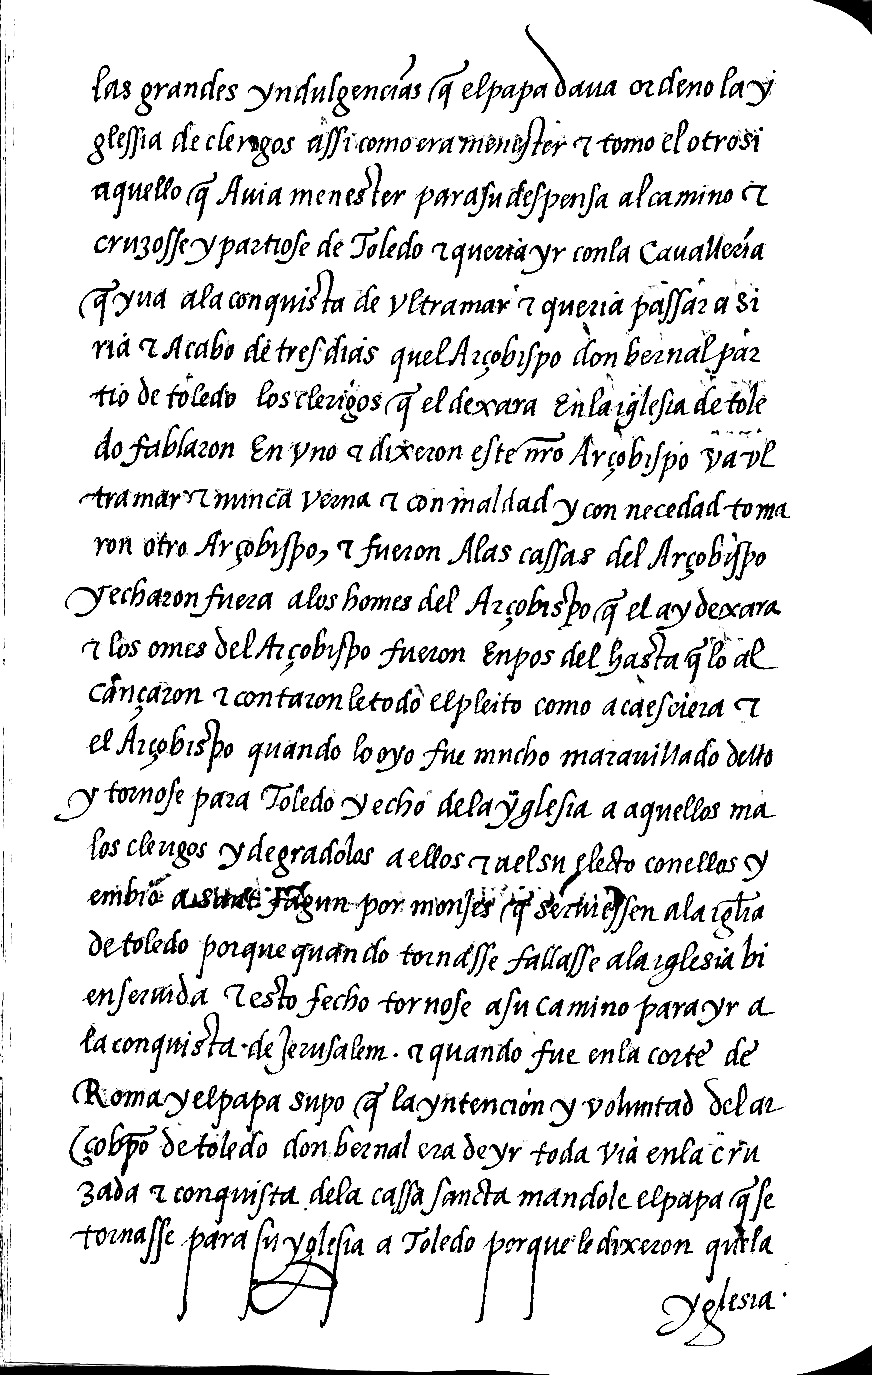 las grandes yndulgençias q̃ el papa daua ordeno la y
glessia de clerigos assi como era menester τ tomo el otrosi
aquello q̃ Auia menester para su despensa al camino τ
cruzosse y partiose de Toledo τ queria yr con la Cauallería
q̃ yua a la conquista de vltramar τ queria passar a Si
ria τ Acabo de tres dias quel Arçobispo don bernal par
tio de toledo los clerigos q̃ el dexara En la iglesia de tole
do fablaron En vno τ dixeron este nr̃o Arçobispo va vl
tramar τ nunca verna τ con maldad y con necedad toma
ron otro Arçobispo, τ fueron Alas cassas del Arçobispo
y echaron fuera a los homes del Arçobispo q̃ el ay dexara
τ los omes del Arçobispo fueron Enpos del hasta q̃ lo al
cançaron τ contaron le todo el pleito como acaesciera τ
el Arçobispo quando lo oyo fue mucho marauillado dello
y tornose para Toledo y echo de la yglesia a aquellos ma
los clerigos y degradolos a ellos τ a el su electo con ellos y
embio a sant fagun por monjes q̃ seruiessen a la iglia
de toledo porque quando tornasse fallasse a la iglesia bi
en seruida τ esto fecho tornose a su camino para yr a
la conquista de Jerusalem. τ quando fue en la corte de
Roma y el papa supo q̃ la yntencion y voluntad del ar
çobpo de toledo don bernal era de yr toda via en la cru
zada τ conquista de la cassa sancta mandole el papa q̃ se
tornasse para su yglesia a Toledo porque le dixeron que la
yglesia.